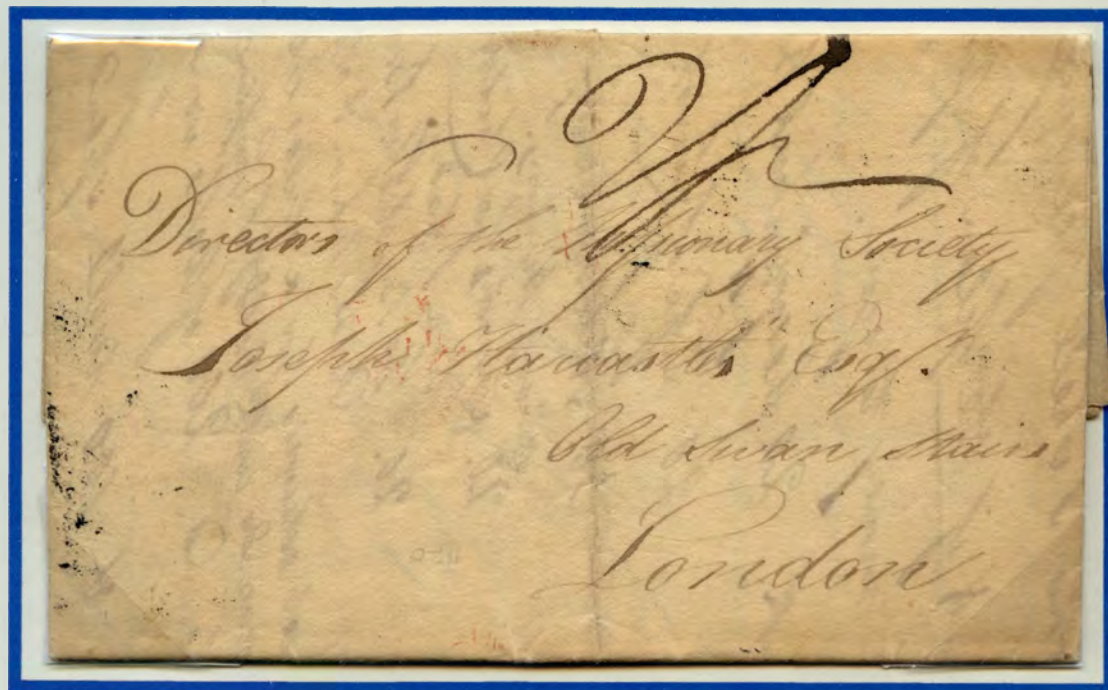 Directors of the Missionary Society
Joseph Hardcastle Esqr.
Old Swan Stairs
London